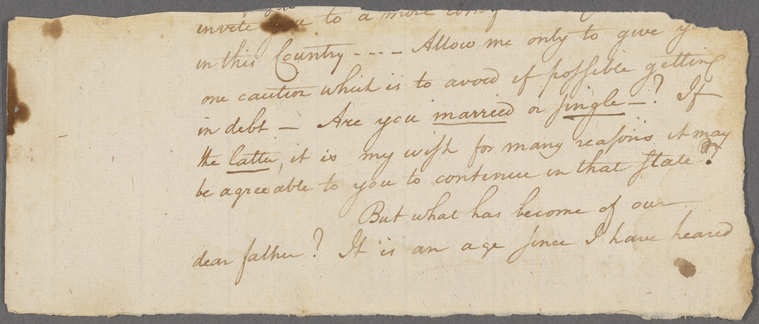 invite you to a more
in this Country ---- Allow me only to give
one caution which is to avoid if possible getting
in debt — Are you married or single —? If
the latter, it is my wish for many reasons it may
be agreeable to you to continue in that state?
But what has become of our
dear father? It is an age since I have heared